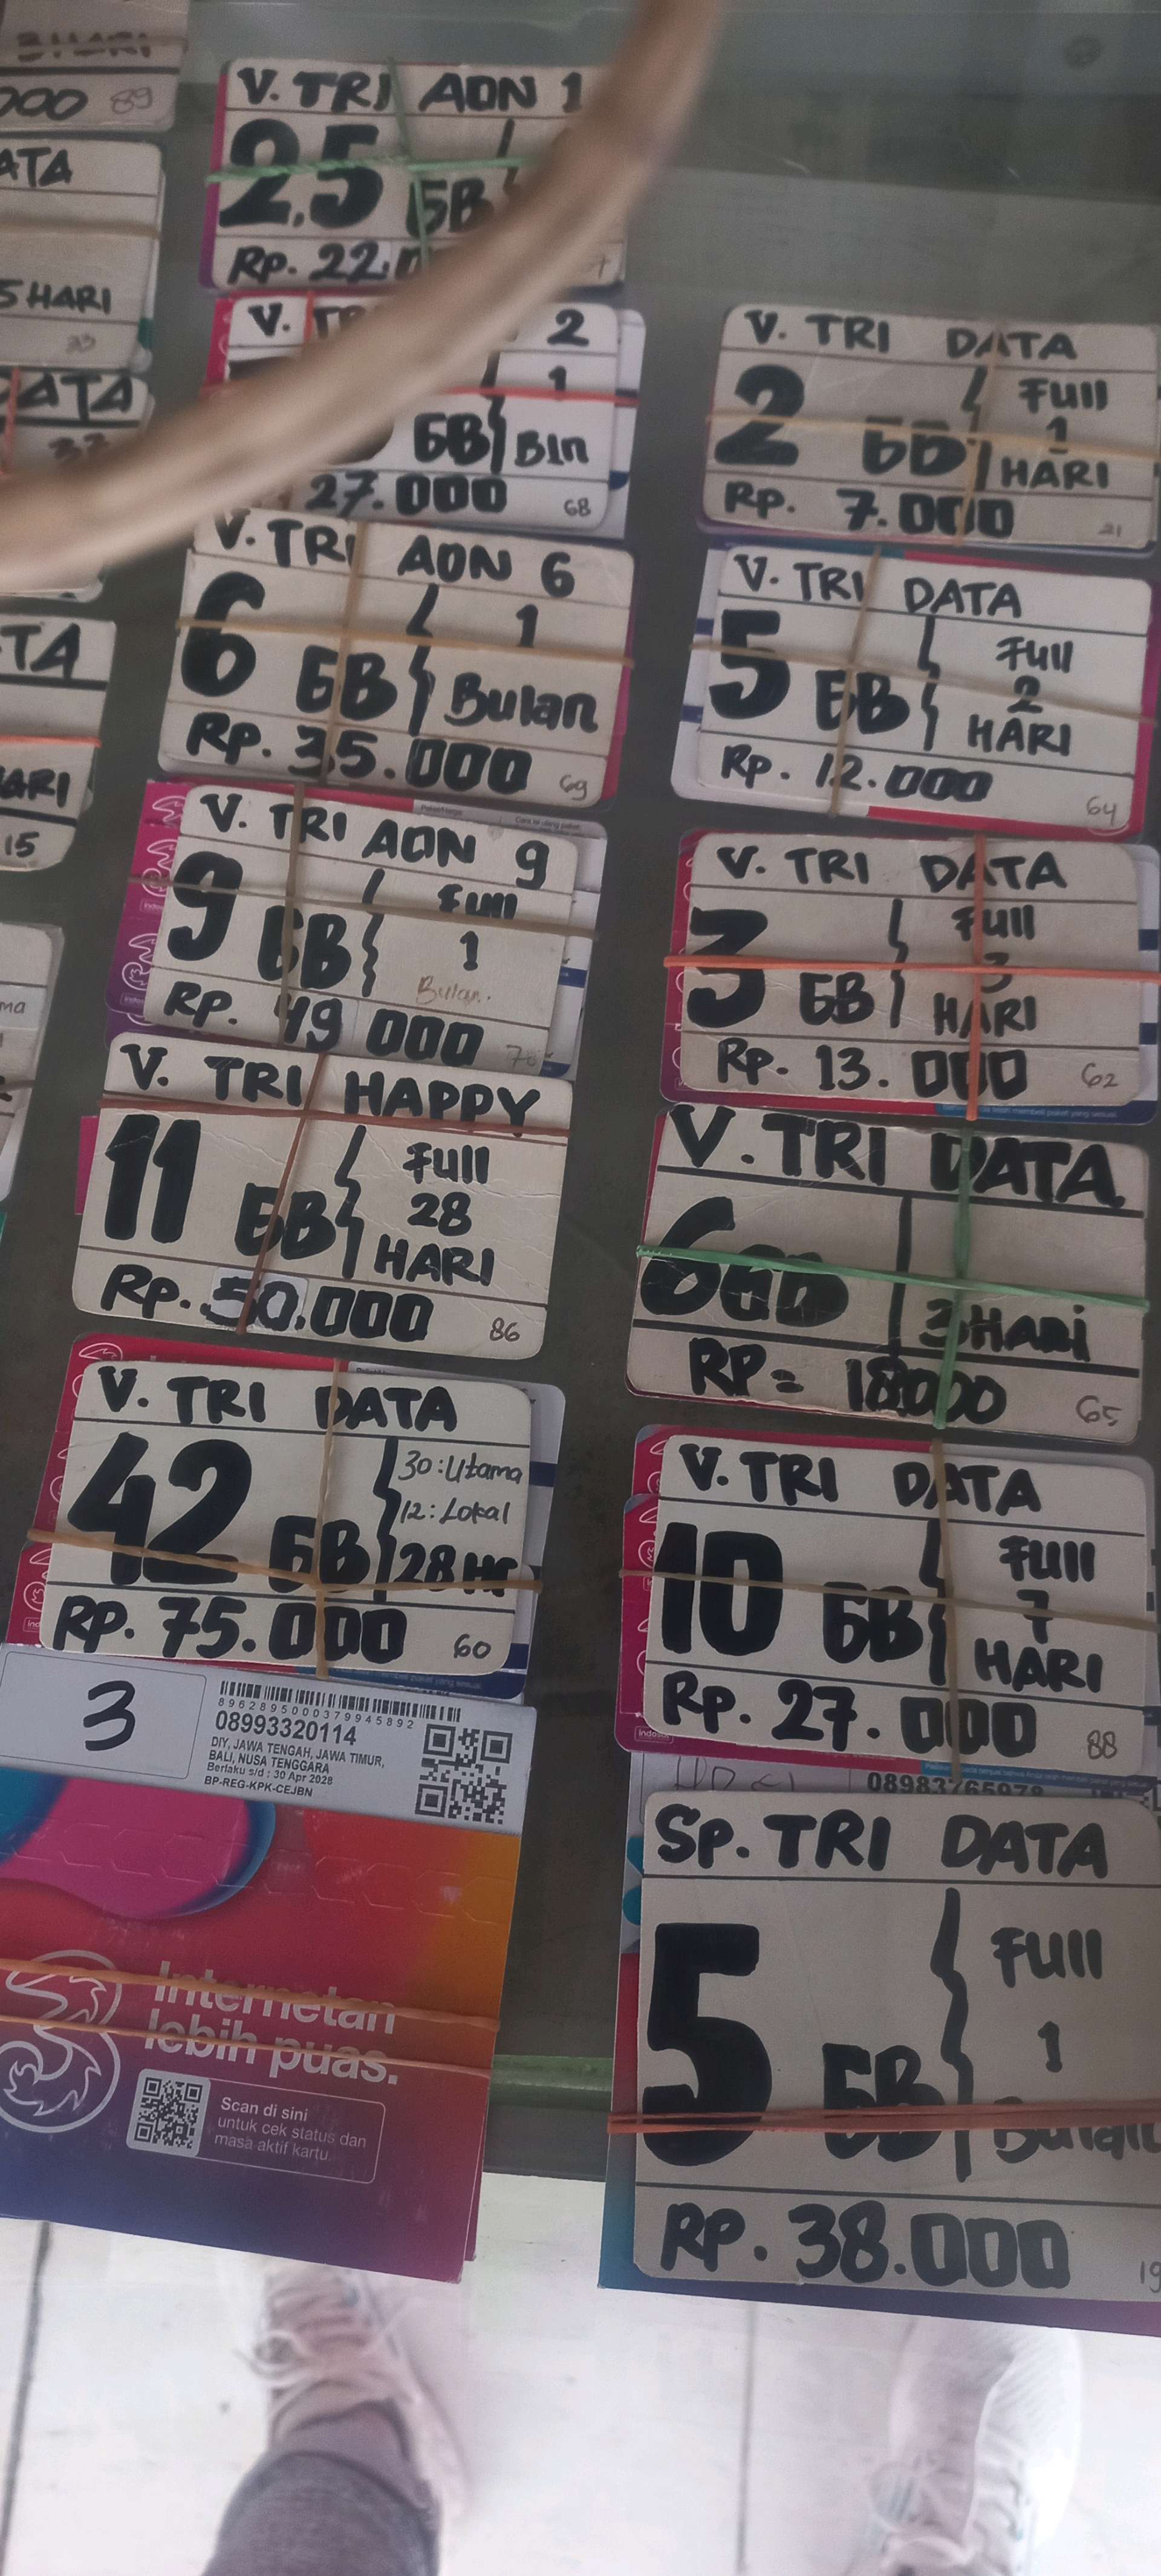 3 HARI
000 89
ATA
5 HARI
23
DATA
33
TA
ARI
15
ma
V. TRI AON 1
2,5 GB
Rp. 22.0
7
V. TR 2
1
GB Bln
27.000 68
V. TRI AON 6
6 GB 1 Bulan
Rp. 35.000 69
V. TRI AON 9
9 GB Full
1
Bulan.
RP. 49 000 70
V. TRI HAPPY
11 GB Full
28
HARI
Rp. 50.000 86
V. TRI DATA
42 GB 30 : Utama
12 : Lokal
28 Hr
RP. 75.000 60
3
8962895000379945892
08993320114
DIY, JAWA TENGAH, JAWA TIMUR,
BALI, NUSA TENGGARA
Berlaku s/d : 30 Apr 2028
BP-REG-KPK-CEJBN
Internetan
lebih puas.
Scan di sini
untuk cek status dan
masa aktif kartu.
V. TRI DATA
2 GB Full
1
HARI
Rp. 7.000 21
V. TRI DATA
5 GB Full
2
HARI
Rp. 12.000 64
V. TRI DATA
3 GB Full
3
HARI
Rp. 13.000 62
V. TRI DATA
6 GB 3 HARi
RP = 18000 65
V. TRI DATA
10 GB Full
7
HARI
Rp. 27.000 88
08983765978
Sp. TRI DATA
5 GB Full
1
Bulan
RP. 38.000 19